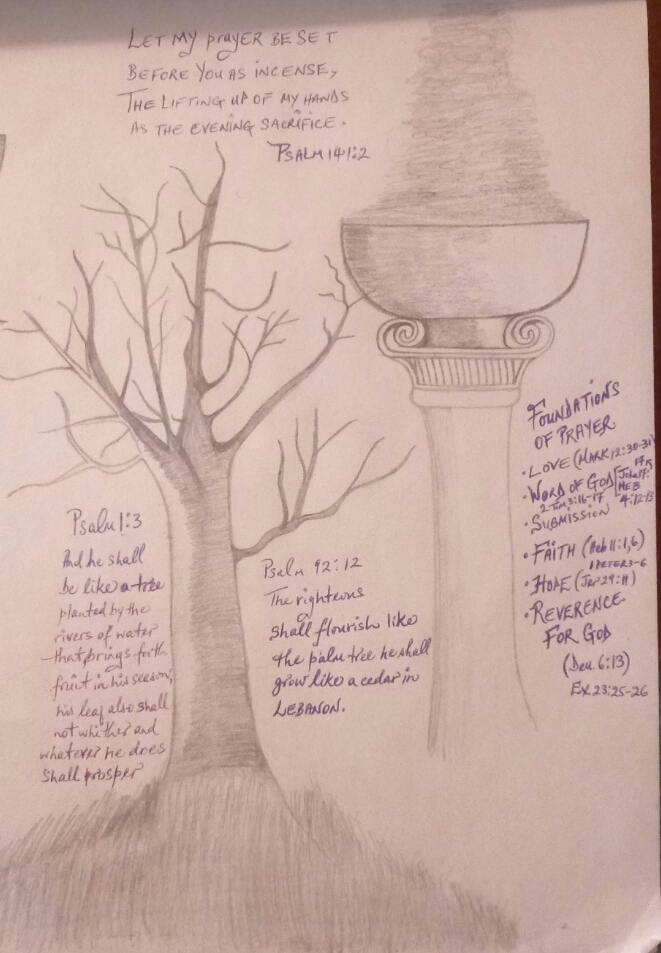 LET MY prayer BE SET
BEFORE YOU AS INCENSE,
THE LIFTING UP OF MY HANDS
AS THE EVENING SACRIFICE.
PSALM 141:2
Psalm 1:3
And he shall
be like a tree
planted by the
rivers of water
that brings forth
fruit in his season;
his leaf also shall
not whither and
whatever he does
shall prosper
Psalm 92:12
The righteous
shall flourish like
the palm tree he shall
grow like a cedar in
LEBANON.
FOUNDATIONS
OF PRAYER
• LOVE (MARK 12:30-31)
• WORD OF GOD [John 17:
17
2 Tim 3:16-17 HEB
4:12-13
• SUBMISSION
• FAITH (Heb 11:1,6)
1 PETER 3-6
• HOPE (Jer 29:11)
• REVERENCE
FOR GOD
(Deu 6:13)
EX 23:25-26